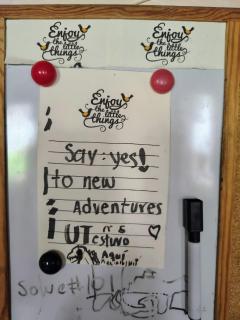 Enjoy
the little
things
Enjoy
the little
things
Enjoy
the little
things
Say: yes!
to new
Adventures
UT
estuvo
Aquí
Solve #101